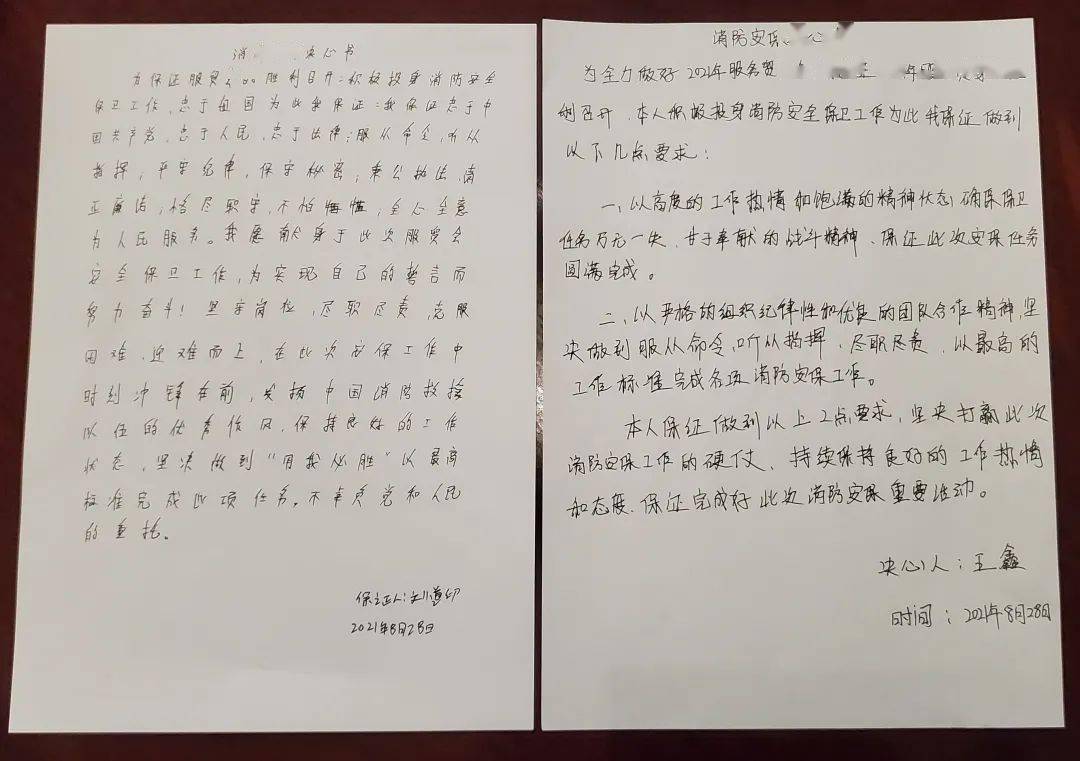 消 决心书
为保证服贸会 胜利召开:积极投身消防安全
保卫工作,忠于祖国为此我保证:我保证忠于中
国共产党,忠于人民,忠于法律;服从命令,听从
指挥,严守纪律,保守秘密;秉公执法,清
正廉洁;恪尽职守,不怕 ;全心全意
为人民服务。我愿献身于此次服贸会
安全保卫工作,为实现自己的誓言而
努力奋斗!坚守岗位,尽职尽责,克服
困难,迎难而上,在此次安保工作中
时刻冲锋在前,发扬中国消防救援
队伍的优秀作风,保持良好的工作
状态,坚决做到“用我必胜”以最高
标准完成此项任务。不辜负党和人民
的重托。
保证人:
2021年8月28日
消防安保 心
为全力做好2021年服务贸
利召开,本人积极投身消防安全保卫工作为此我保证做到
以下几点要求:
一、以高度的工作热情和饱满的精神状态,确保保卫
任务万无一失,甘于奉献的战斗精神、保证此次安保任务
圆满完成。
二、以严格的组织纪律性和优良的团队合作精神,坚
决做到服从命令,听从指挥,尽职尽责,以最高的
工作标准完成各项消防安保工作。
本人保证做到以上2点要求,坚决打赢此次
消防安保工作的硬仗,持续保持良好的工作热情
和态度、保证完成好此次消防安保重要活动。
决心人:王鑫
时间:2021年8月28日